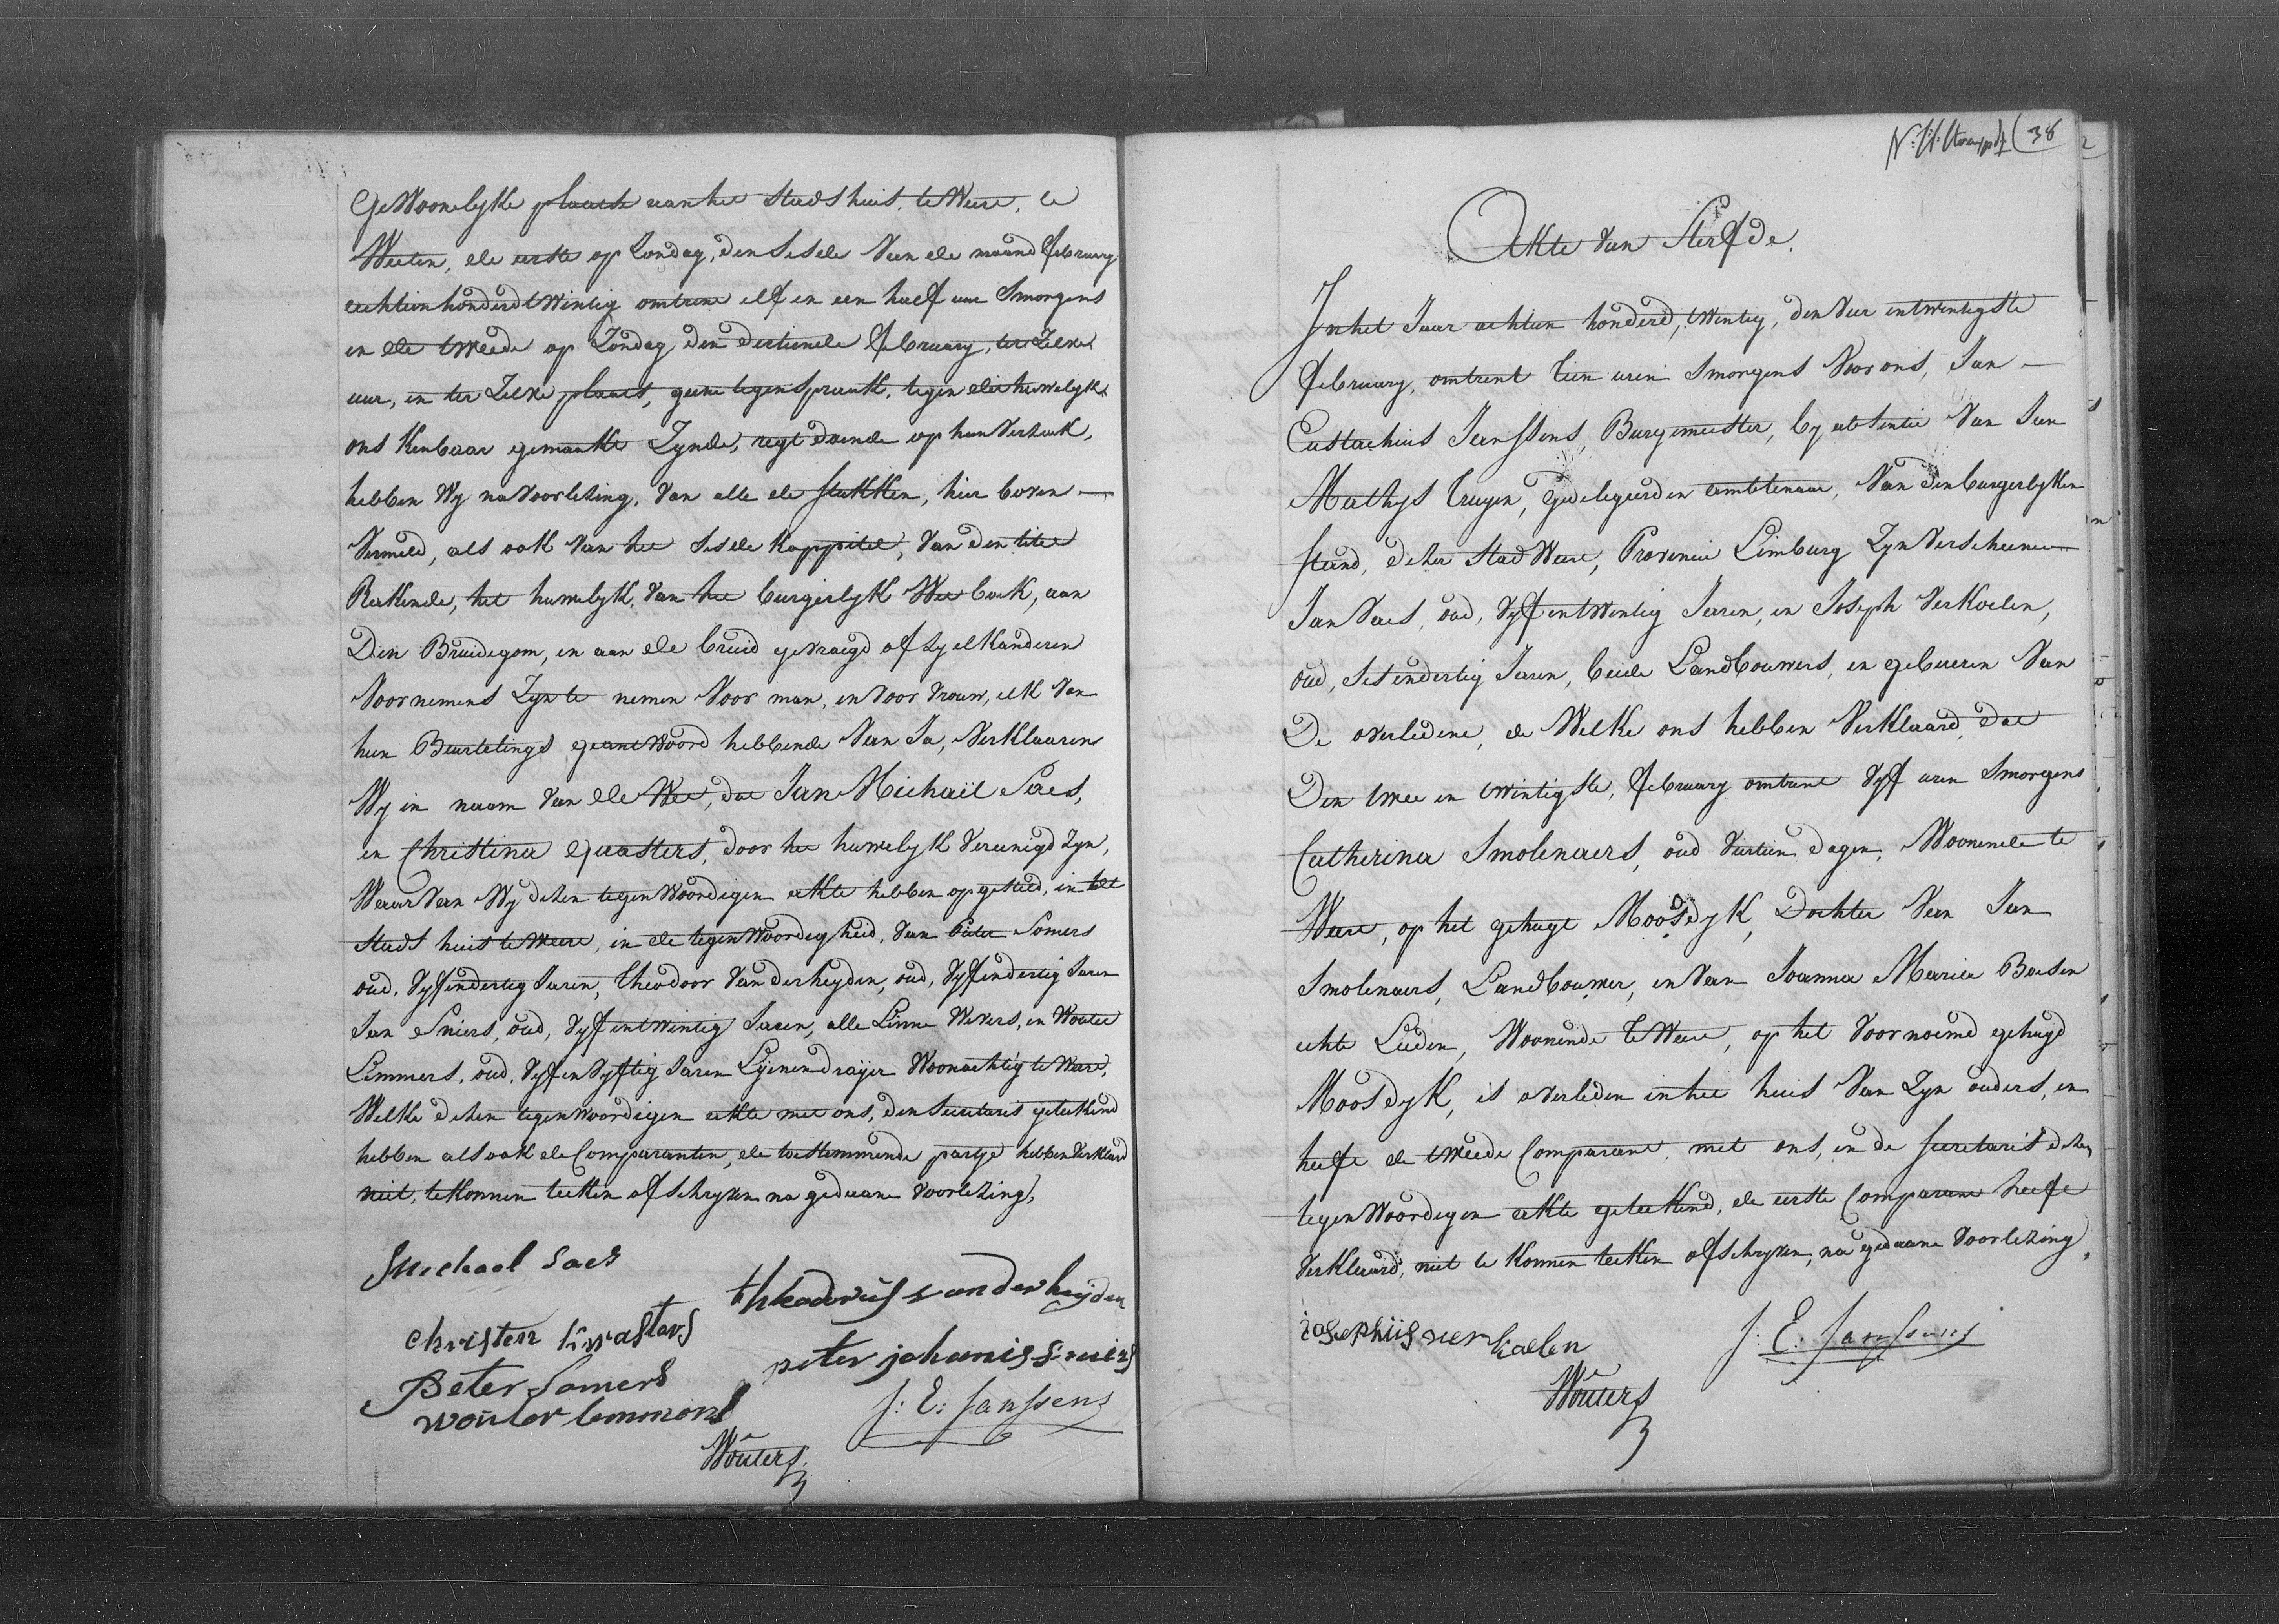 GeWoonelyke plaatse aan het stadshuis, te Weert, te
Weeten, de eerste op Zondag, den sesde Van de maand february
achtien honderd twintig omtrent elf en een half uur Smorgens
en de tweede op Zondag, den dertiende february, ter Zelve
uur, en ter Zelve plaats, geene tegenspraak, tegen dit huwelyk
ons Kenbaar gemaakt Zynde, regt doende op hun Verzoek,
hebben Wy na Voorlezing, Van alle de stukken, hier boven
Vermeld, als ook Van het sesde kappitel, Van den titel
Rakende, het huwelyk, Van het burgerlyk Wet boek, aan
Den Bruidegom, en aan de bruid gevraegd of zy elkanderen
Voornemens Zyn te nemen Voor man, en Voor Vrouw, elk Van
hun Beurtelings geantwoord hebbende Van Ja, Verklaaren
Wy in naam Van de Wet, dat Jan Michaël Saes,
en Christina Quasters, door het huwelyk Vereenigd zyn,
Waar Van Wy dezen tegenwoordigen akte hebben opgesteld, in het
stads huis te Weert, in de tegenwoordigheid, Van Peter Somers
oud, Vyfendertig Jaren, Theodoor Van der heyden, oud, Vyfendertig Jaren
Jan Sniers, oud, Vyf entwintig Jaren, alle Linne Wevers, en Wouter
Lemmens, oud, Vyf en Vyftig Jaren Lynendrayer Woonachtig te Weert,
Welke dezen tegenwoordigen akte met ons, den Secretaris geteekend
hebben als ook de Comparanten, de toestemmende partye hebben Verklaard
niet, te konnen teeken of schryven na gedaane Voorlezing,
Michael Saes
theodorus vanderheijden
christen kwasters
peter johanis sniers
Peter Somers
wouter lemmens
J: E: Janssens
Wouters
38
Akte Van Sterfde.
In het Jaar achtien honderd, twintig, den Vier entwintigste
february, omtrent tien uren Smorgens Voor ons, Jan
Eustachius Janssens, Burgemeester, by absentie Van Jan
Mathys Truyen, Gedelegeerden ambtenaar, Van den burgerlyken
stand, dezer stad Weert, Provincie Limburg Zyn Verscheenen
Jan Vaes, oud, Vyf entwintig Jaren, en Joseph Verkoelen,
oud, Sesendertig Jaren, beide Landbouwers, en gebueren Van
De overledene, de Welke ons hebben Verklaard, dat
Den twee en twintigste, february omtrent Vyf uren Smorgens
Catherina Smolenaers, oud Viertien dagen, Woonende te
Weert, op het gehugt Moosdyk, Dochter Van Jan
Smolenaers, Landbouwer, en Van Joanna Maria Baesen
echte Lieden, Woonende te Weert, op het Voornoemd gehugd
Moosdyk, is overleden in het huis Van Zyn ouders, en
heeft de tweede Comparant, met ons, en de secretaris dezen
tegenwoordigen akte geteekend, de eerste Comparant heeft
Verklaard, niet te konnen teeken of schryven, na gedaane Voorlezing.
iosephus verkoelen
J: E: Janssens
Wouters